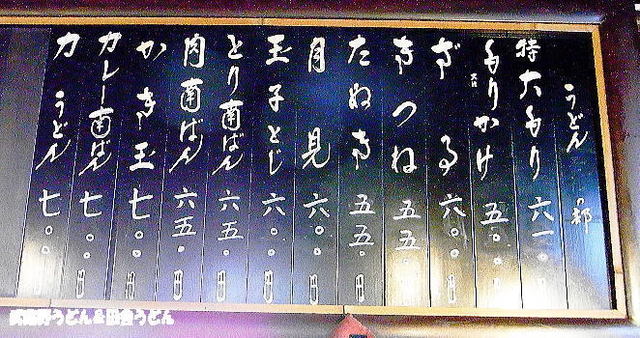 うどん 之部
特大もり 六一〇円
もりかけ 五〇〇円
ざる 六〇〇円
きつね 五五〇円
たぬき 五五〇円
月見 六〇〇円
玉子とじ 六〇〇円
とり南ばん 六五〇円
肉南ばん 六五〇円
かき玉 七〇〇円
カレー南ばん 七〇〇円
力うどん 七〇〇円
武蔵野うどん&田舎うどん